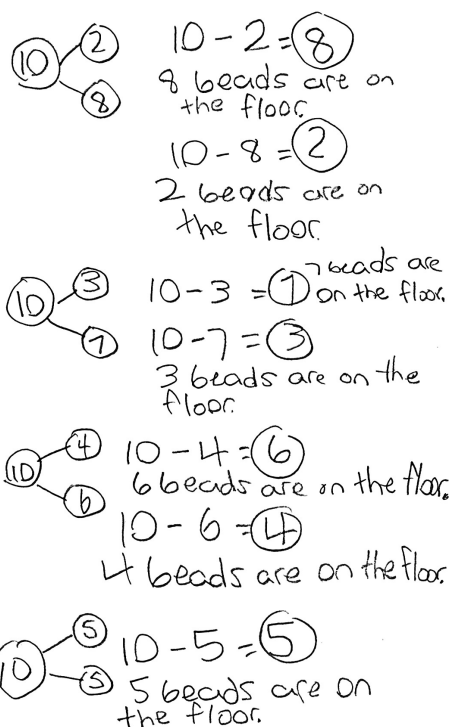 10 2 8 10 - 2 = 8
8 beads are on
the floor.
10 - 8 = 2
2 beads are on
the floor.
10 3 7 10 - 3 = 7 7 beads are
on the floor.
10 - 7 = 3
3 beads are on the
floor.
10 4 6 10 - 4 = 6
6 beads are on the floor.
10 - 6 = 4
4 beads are on the floor.
10 5 5 10 - 5 = 5
5 beads are on
the floor.